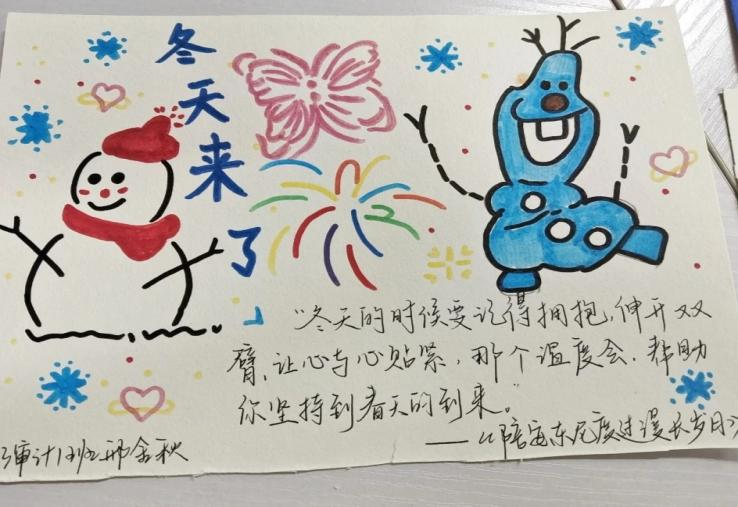 冬天来了
"冬天的时候要记得拥抱,伸开双
臂,让心与心贴紧,那个温度会,帮助
你坚持到春天的到来。"
——《陪安东尼度过漫长岁月
审计1班邢金秋